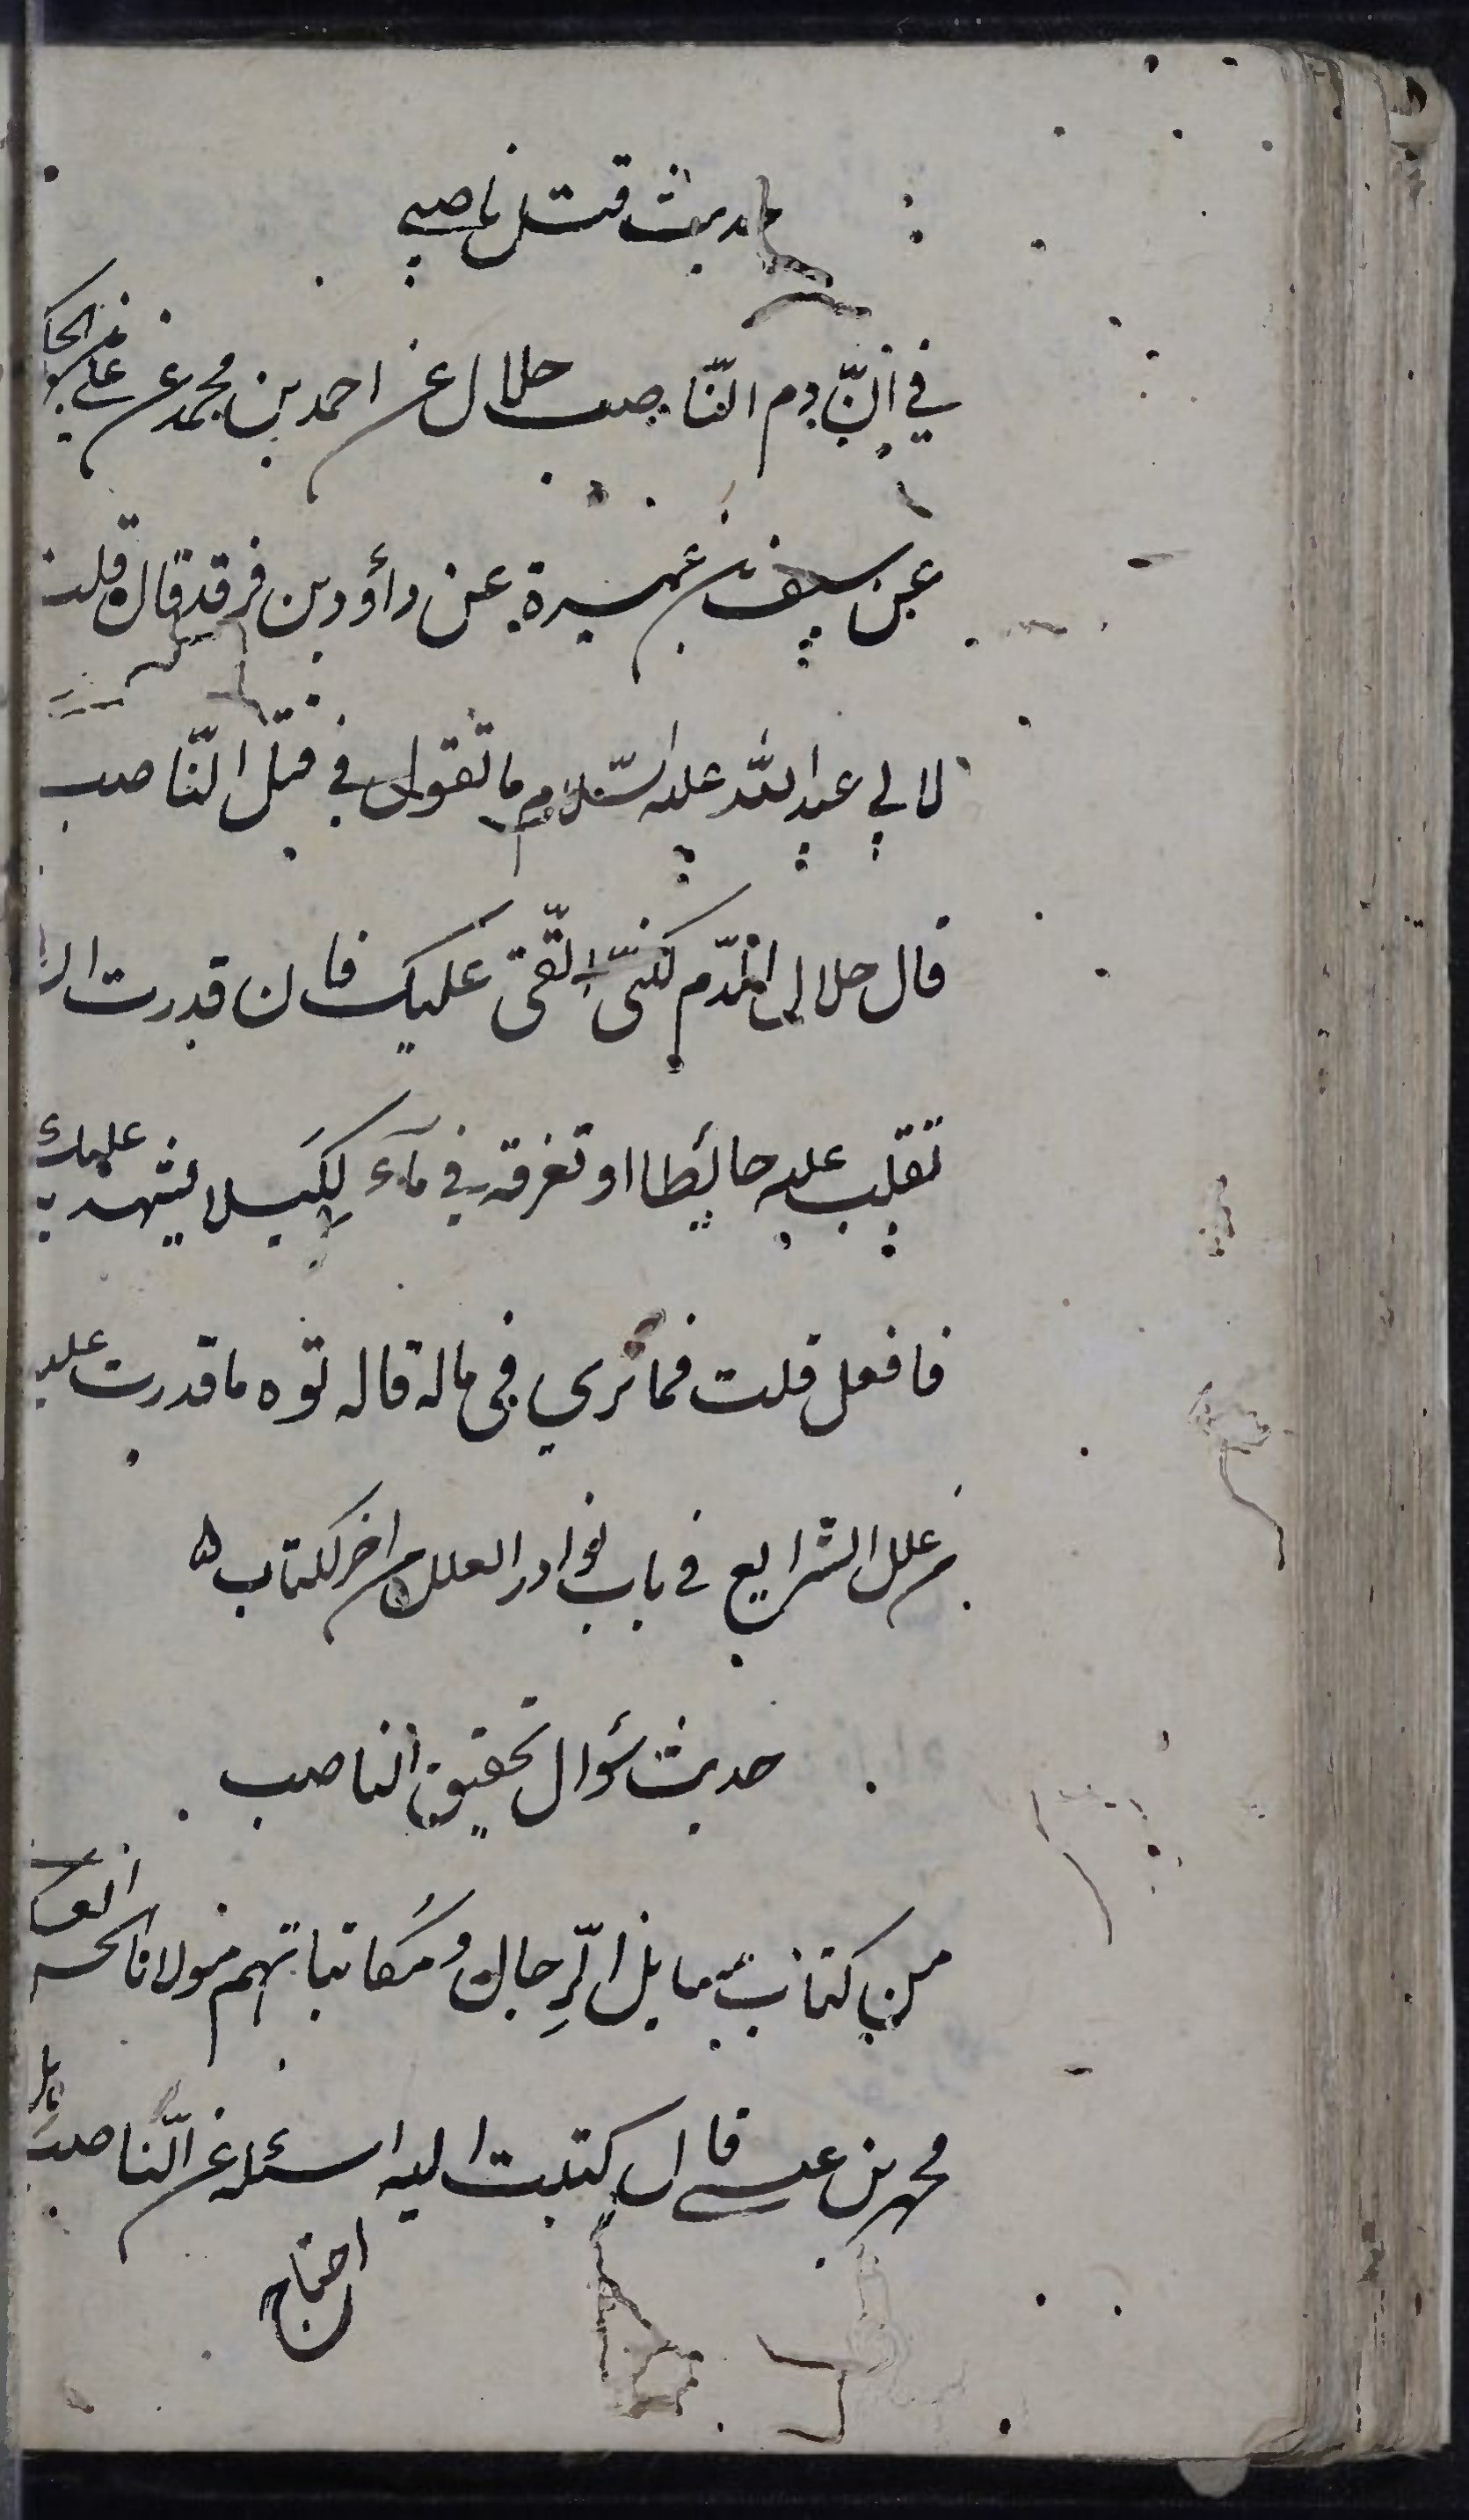 حديث قتل ناصبي
في انّ دم النّاصب حلال عن احمد بن محمد عن علي بن الحكم
عن سيف بن عميرة عن داؤد بن فرقد قال قلت
لابي عبد اللّه عليه السّلام ما تقول في قتل النّاصب
قال حلال الدّم لكنّى اتّقى عليك فان قدرت ان
تقلب عليه حائطا او تغرقه في مآء لكيلا يشهد به عليك
فافعل قلت فما ترى في ماله قال توه ما قدرت عليه
من علل الشرايع في باب نوادر العلل من اخر الكتاب
حديث سؤال تحقيق الناصب
من كتاب مسايل الرّجال ومكاتباتهم مولانا
محمد بن عيسى قال كتبت اليه اسئله عن النّاصب هل
احتاج